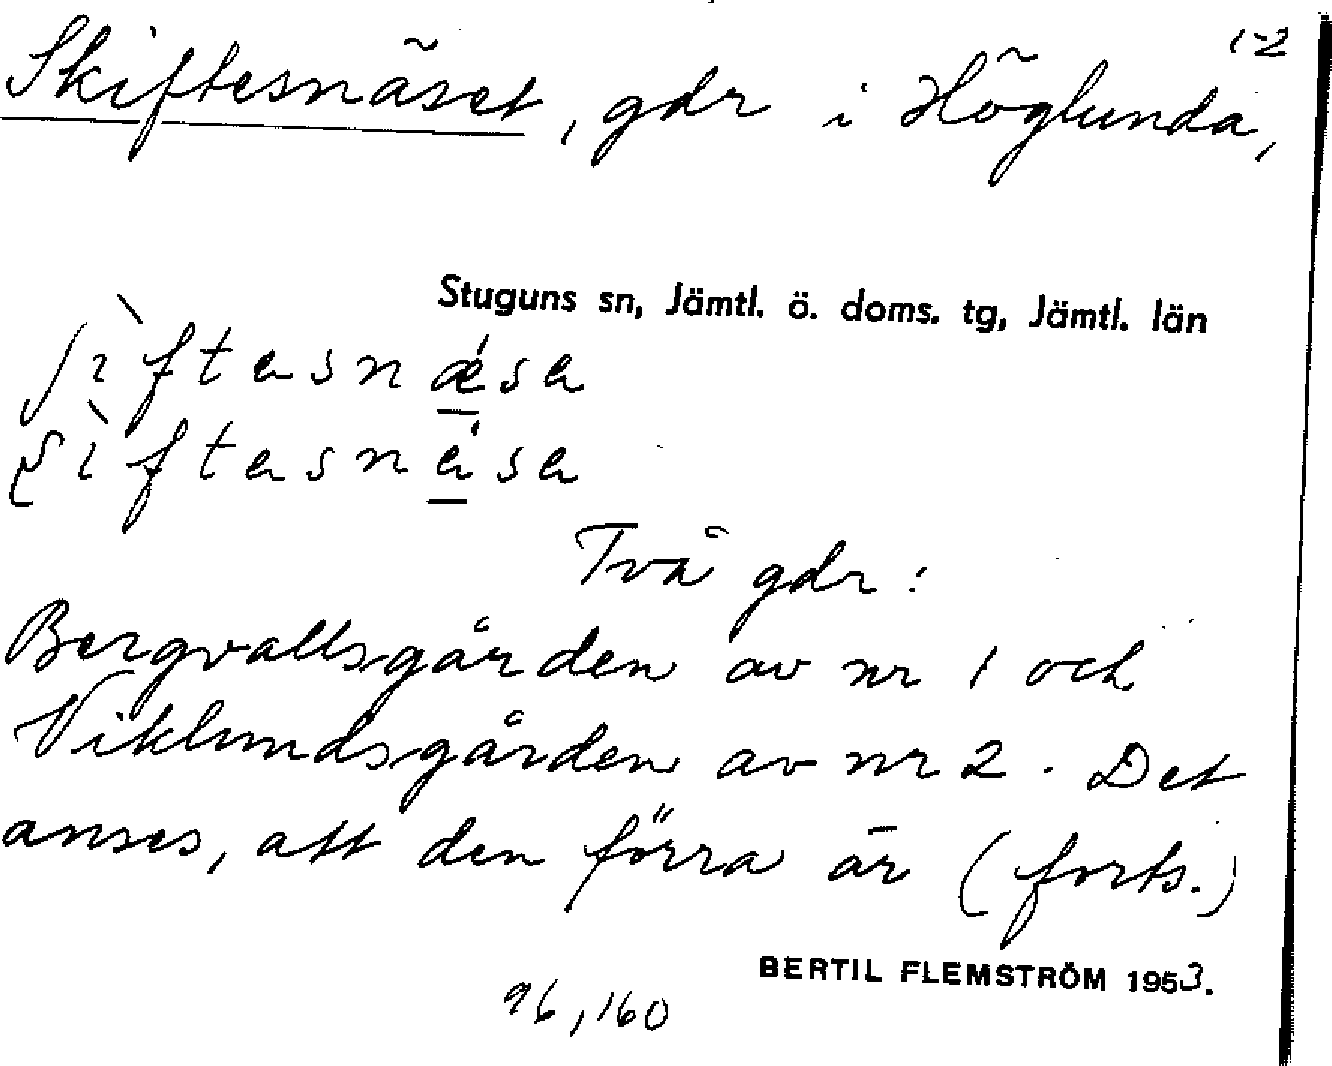 1-2
Skiftesnäset, gdr i Höglunda,
Stuguns sn, Jämtl. ö. doms. tg, Jämtl. län
Två gdr:
Bergvallsgården av nr 1 och
Viklundsgården av nr 2. Det
anses, att den förra är (forts.)
BERTIL FLEMSTRÖM 1953.
96,160